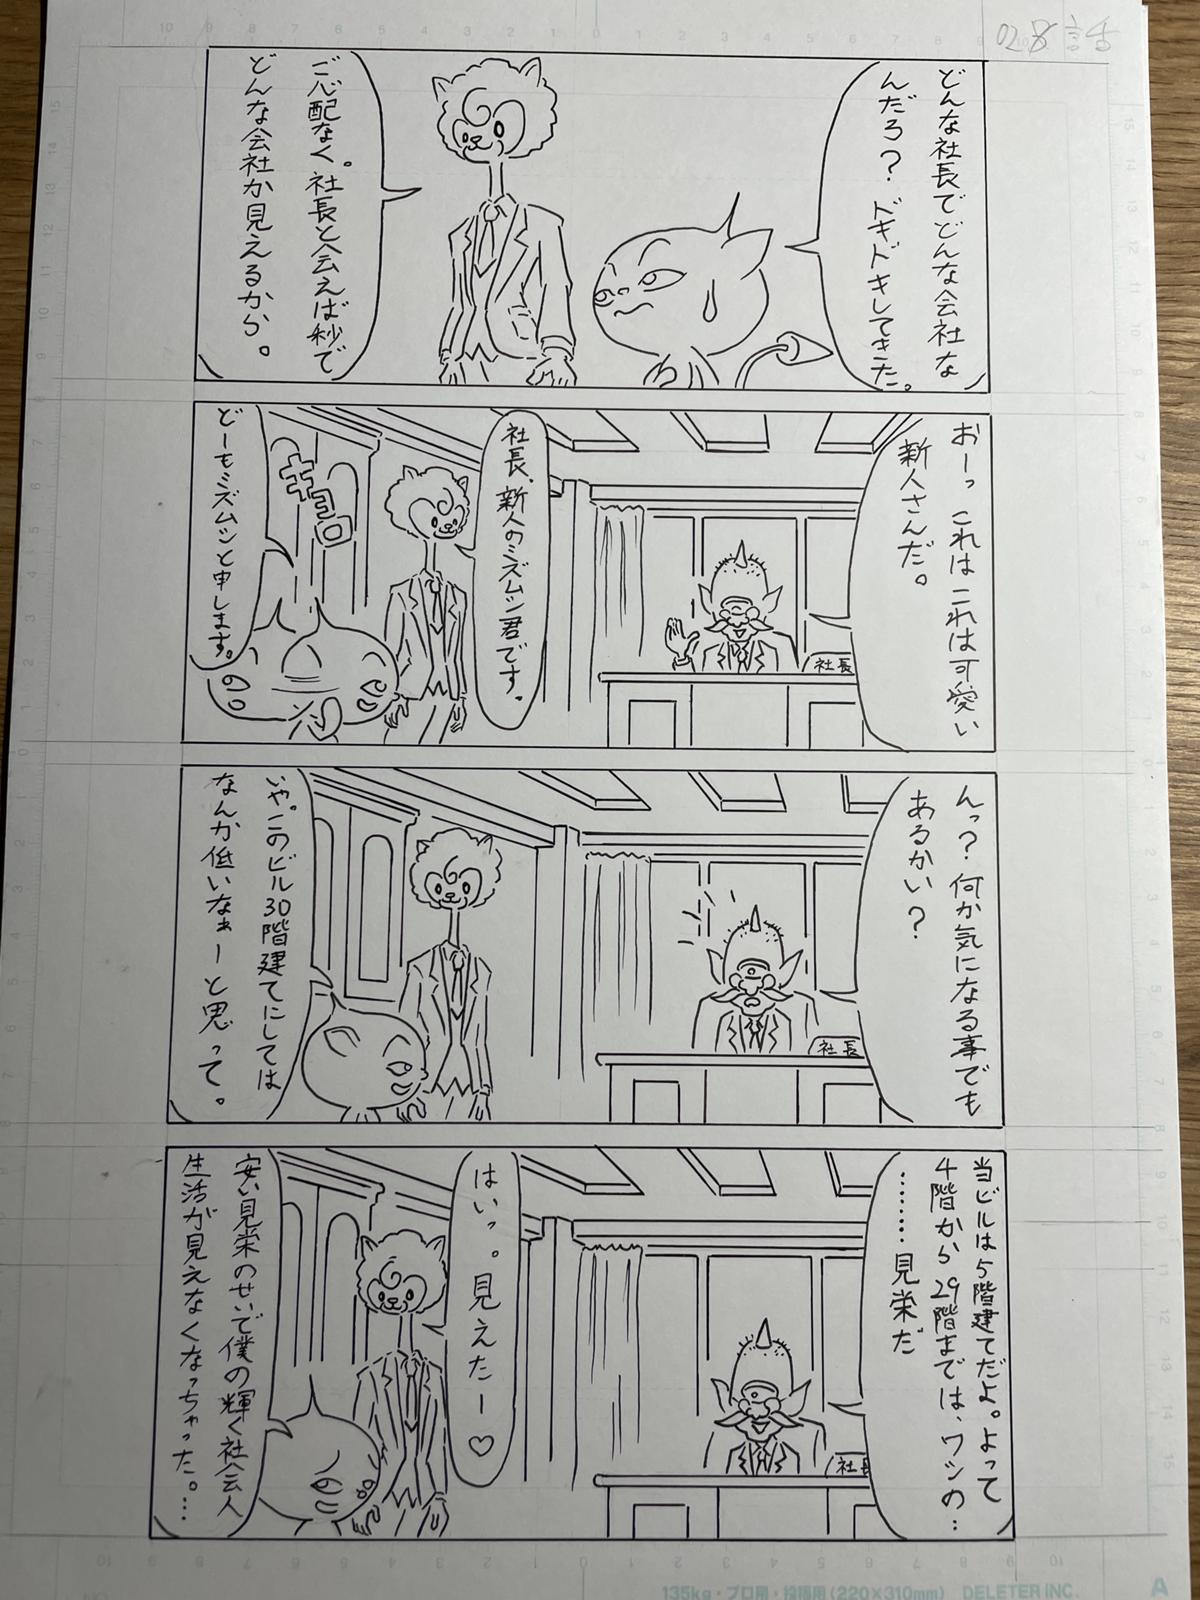 028話
どんな社長でどんな会社な
んだろ？ドキドキしてきた。
ご心配なく。社長と会えば秒で
どんな会社か見えるから。
おーっ これは これは可愛い
新人さんだ。
社長
社長、新人のミズムシ君です。
キョロ
どーもミズムシと申します。
んっ？何か気になる事でも
あるかい？
社長
いや。このビル30階建てにしては
なんか低いなぁーと思って。
当ビルは5階建てだよ。よって
4階から29階までは、ワシの…
………見栄だ
社長
はいっ。見えたー♡
安い見栄のせいで僕の輝く社会人
生活が見えなくなっちゃった。…
135kg・プロ用・投稿用(220×310mm) DELETER INC.
A